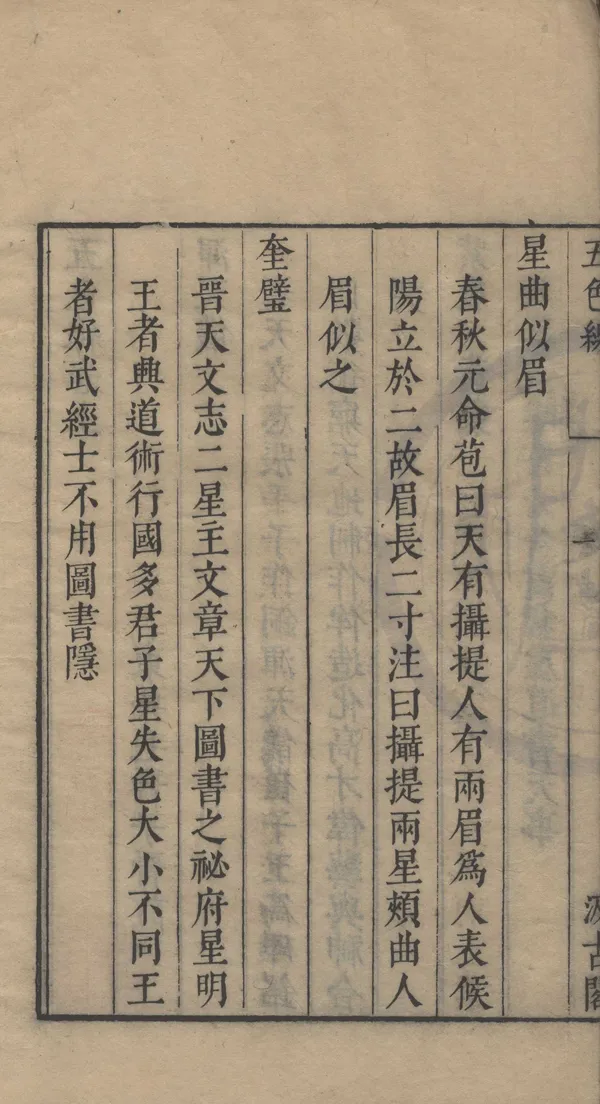 五色線
上
汲古閣
星曲似眉
春秋元命苞曰天有攝提人有兩眉為人表候
陽立於二故眉長二寸注曰攝提兩星頻曲人
眉似之
奎璧
晉天文志二星主文章天下圖書之祕府星明
王者興道術行國多君子星失色大小不同王
者好武經士不用圖書隱